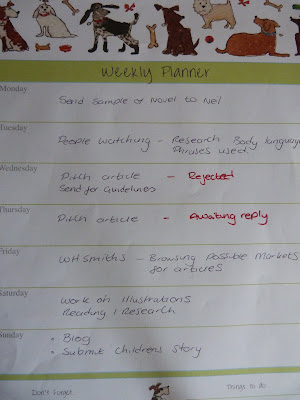 Weekly Planner
Monday
Send Sample of Novel to Nel
Tuesday
People watching - Research Body language
Phrases used.
Wednesday
Pitch article - Rejected
Send for Guidelines
Thursday
Pitch article - Awaiting reply
Friday
WHSmiths - Browsing possible markets
for articles
Saturday
Work on Illustrations
Reading / Research
Sunday
• Blog
• Submit childrens story
Don't Forget
Things to do...